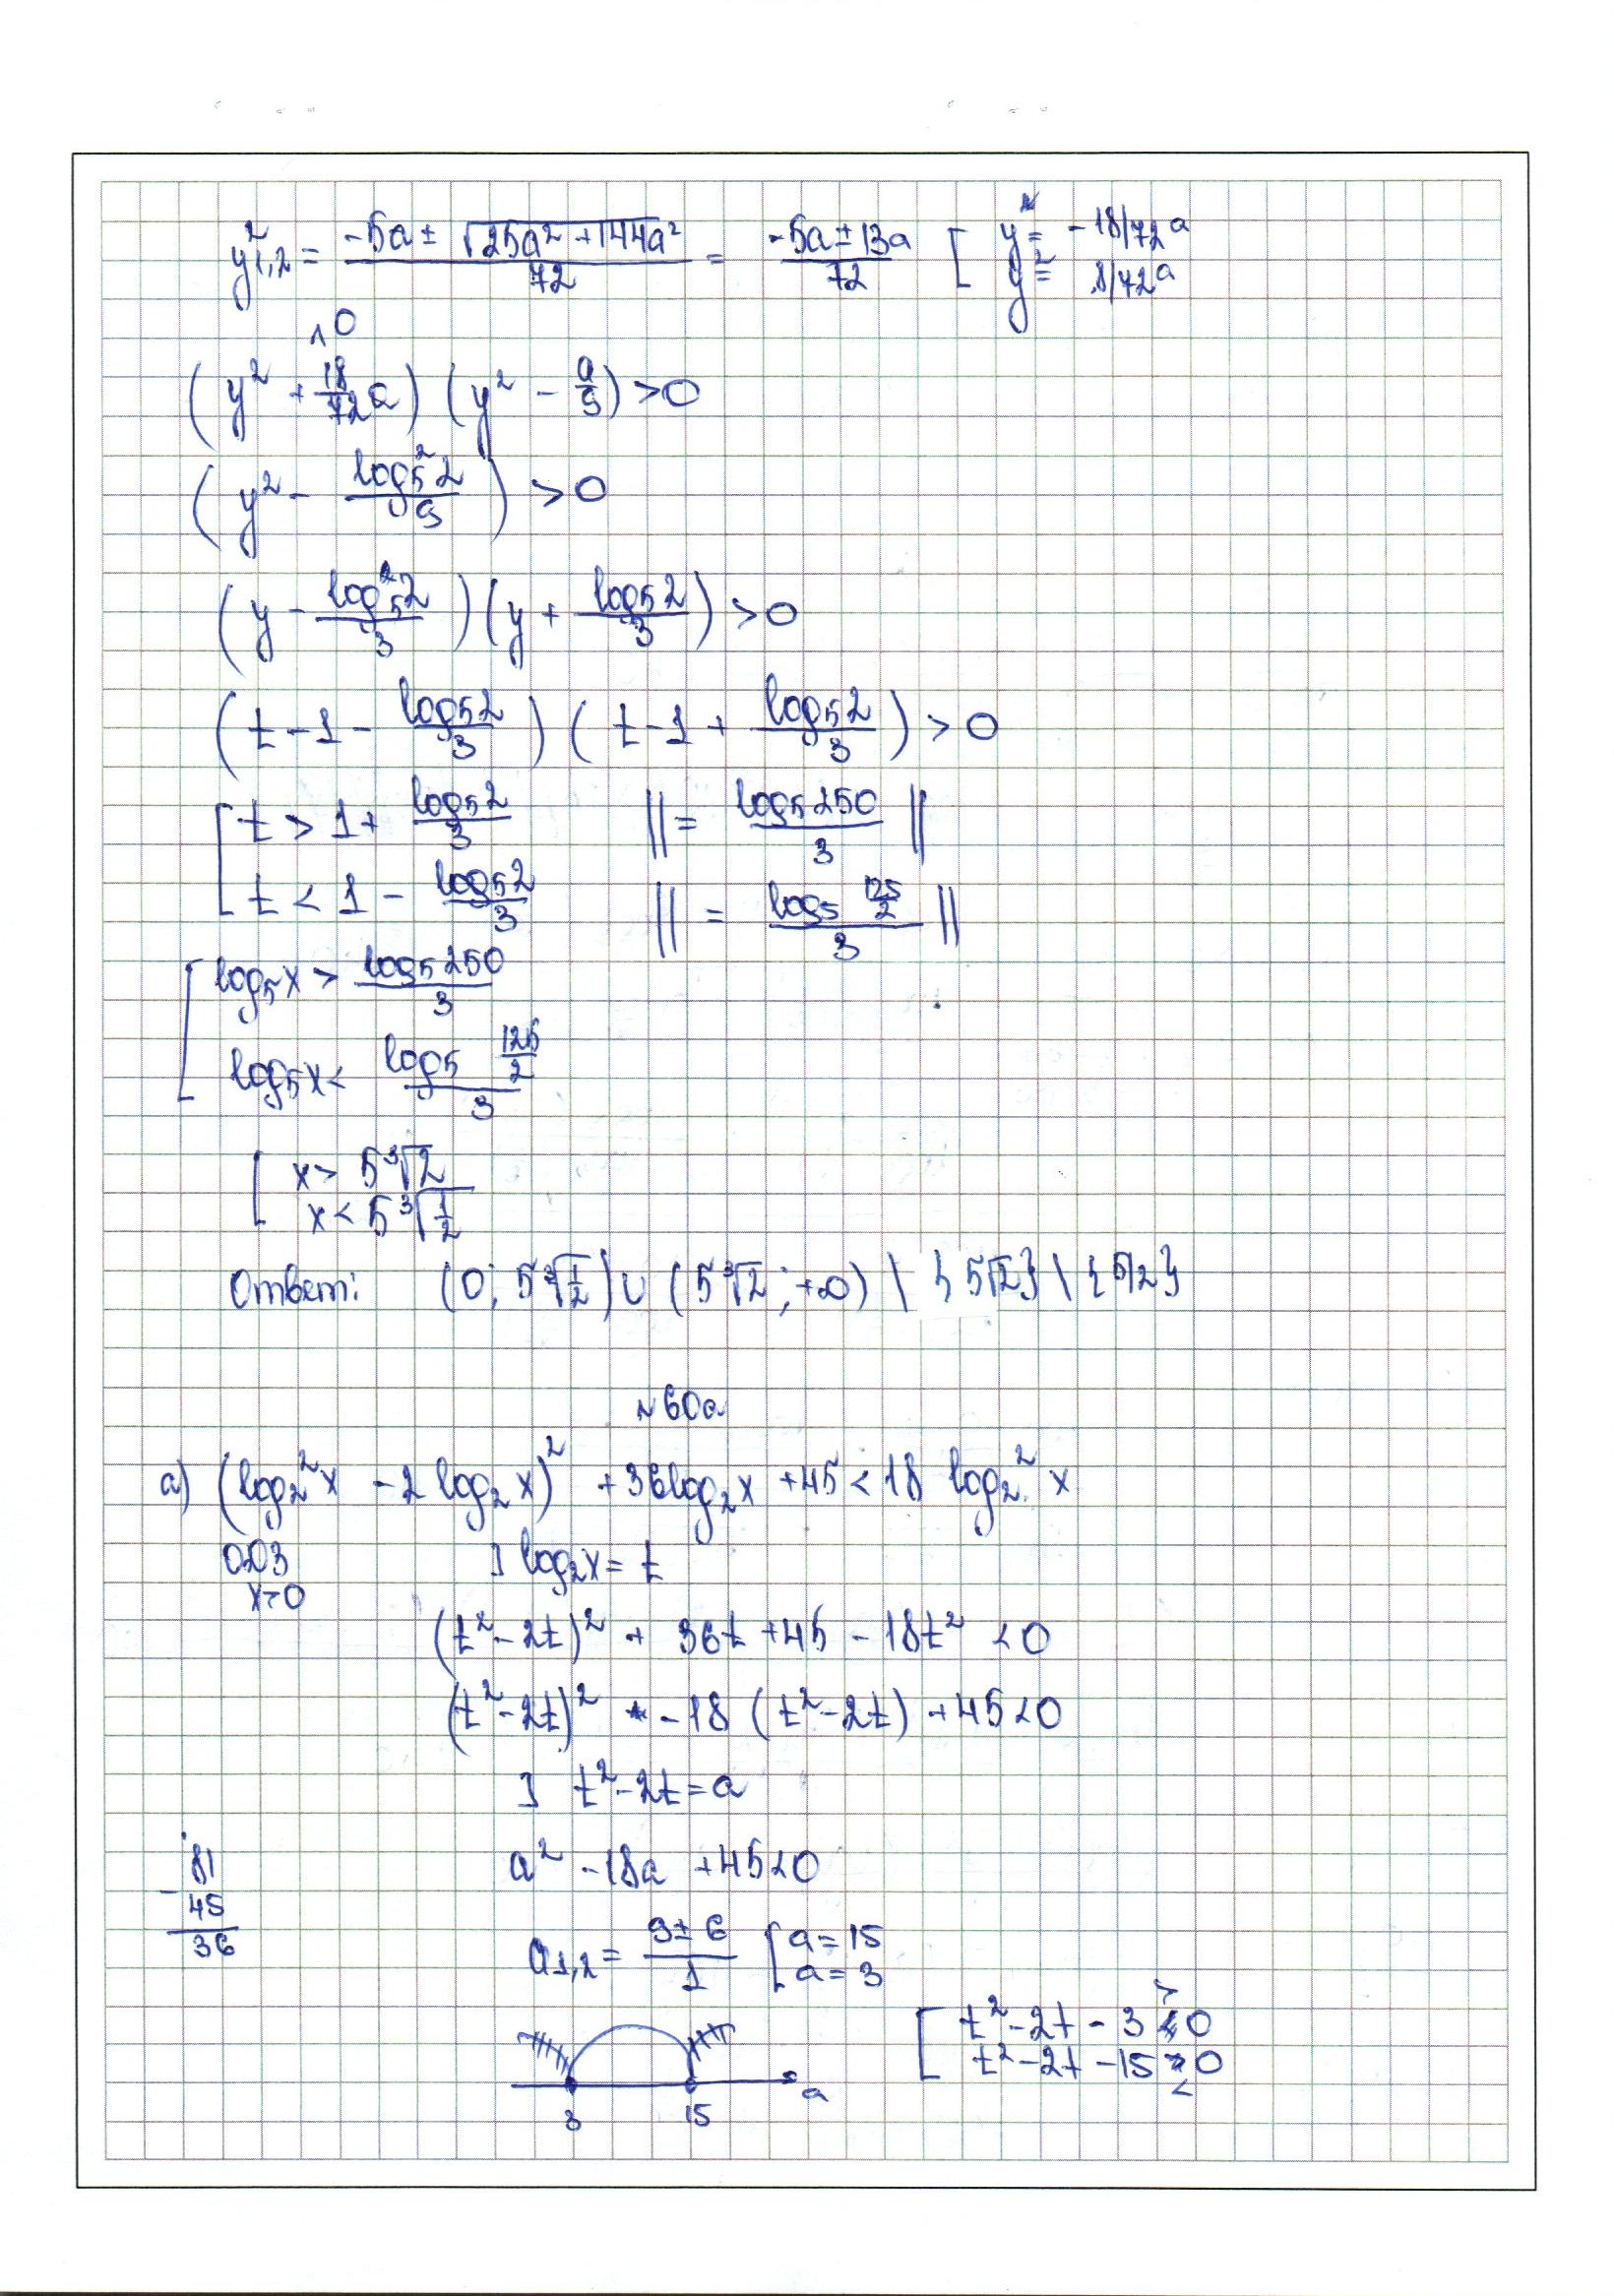 y²₁,₂ = (-5a ± √(25a² + 144a²))/72 = (-5a ± 13a)/72 [ y² = -18/72 a
y² = 8/72 a
^ 0
(y² + 18/72 a) (y² - a/9) > 0
(y² - log₅²2/9) > 0
(y - log₅2/3) (y + log₅2/3) > 0
(t - 1 - log₅2/3) (t - 1 + log₅2/3) > 0
[ t > 1 + log₅2/3 || = log₅250/3 ||
t < 1 - log₅2/3 || = log₅ 125/2 /3 ||
[ log₅x > log₅250/3
log₅x < log₅ 125/2 /3
[ x > 5∛2
x < 5∛(1/2)
Ответ: (0; 5∛(1/2)) ∪ (5∛2; +∞) \ {5√2} \ {5/2}
N 60a
а) (log₂²x - 2 log₂x)² + 36log₂x + 45 < 18 log₂²x
ОДЗ ] log₂x = t
x>0
(t² - 2t)² + 36t + 45 - 18t² < 0
(t² - 2t)² - 18 (t² - 2t) + 45 < 0
] t² - 2t = a
81
- 45
36
a² - 18a + 45 < 0
a₁,₂ = (9 ± 6)/1 [ a = 15
a = 3
[ t² - 2t - 3 > 0
t² - 2t - 15 < 0
3 15 a